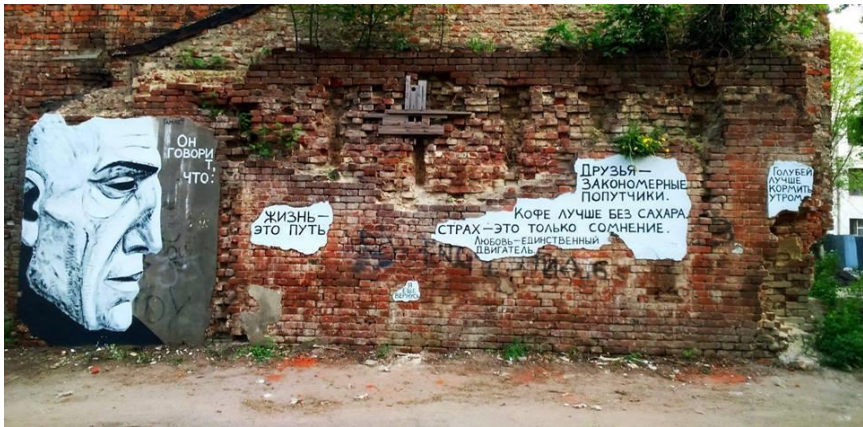 Он
говори
т,
что:
Жизнь—
это путь
Друзья—
закономерные
попутчики.
Кофе лучше без сахара
Страх—это только сомнение.
Любовь—единственный
двигатель
Я
ещё
вернусь
Голубей
лучше
кормить
утром